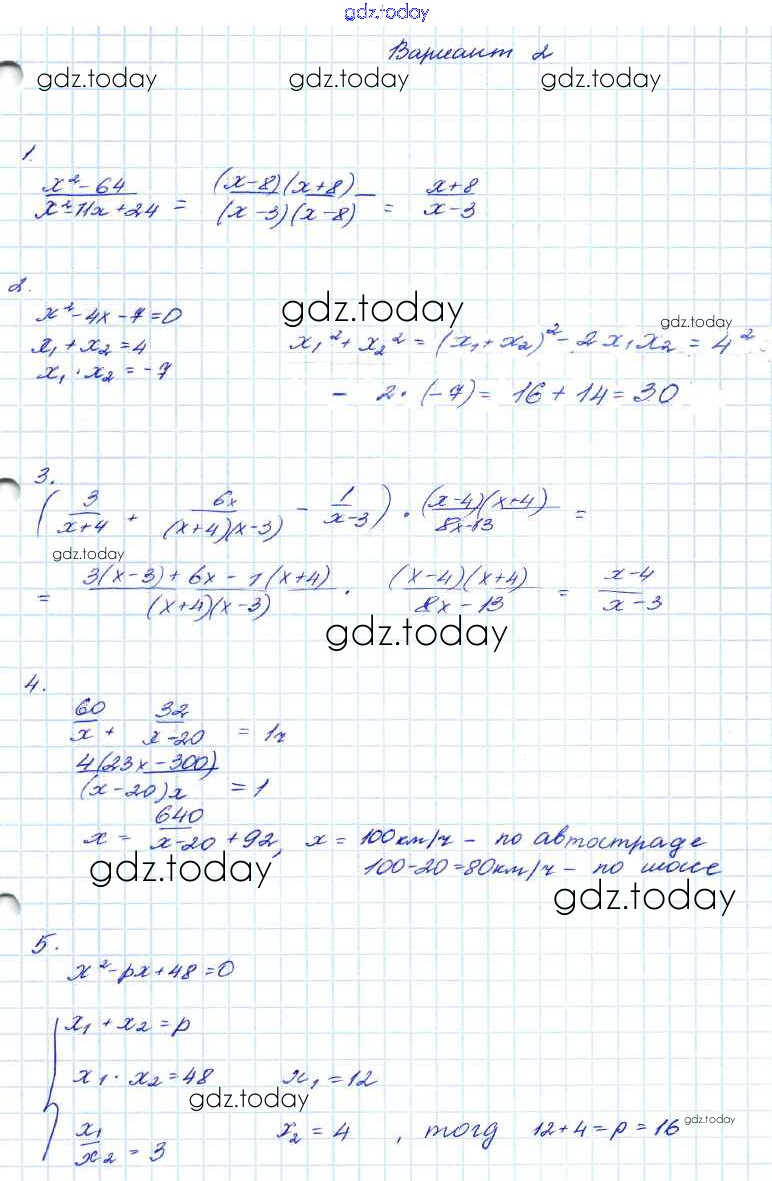 gdz.today
Вариант 2
gdz.today gdz.today gdz.today
1.
(x²-64)/(x²-11x+24) = ((x-8)(x+8))/((x-3)(x-8)) = (x+8)/(x-3)
2.
x²-4x-7=0 gdz.today gdz.today
x₁+x₂=4 x₁²+x₂²=(x₁+x₂)²-2x₁x₂=4²
x₁·x₂=-7 - 2·(-7)=16+14=30
3.
(3/(x+4) + 6x/((x+4)(x-3)) - 1/(x-3)) · ((x-4)(x+4))/(8x-13) =
gdz.today
= (3(x-3)+6x-1(x+4))/((x+4)(x-3)) · ((x-4)(x+4))/(8x-13) = (x-4)/(x-3)
gdz.today
4.
60/x + 32/(x-20) = 1ч
(4(23x-300))/((x-20)x) = 1
x = 640/(x-20) + 92, x = 100км/ч - по автостраде
gdz.today 100-20=80км/ч - по шоссе
gdz.today
5.
x²-px+48=0
{x₁+x₂=p
x₁·x₂=48 x₁=12
gdz.today
x₁/x₂=3 x₂=4, тогд 12+4=p=16 gdz.today